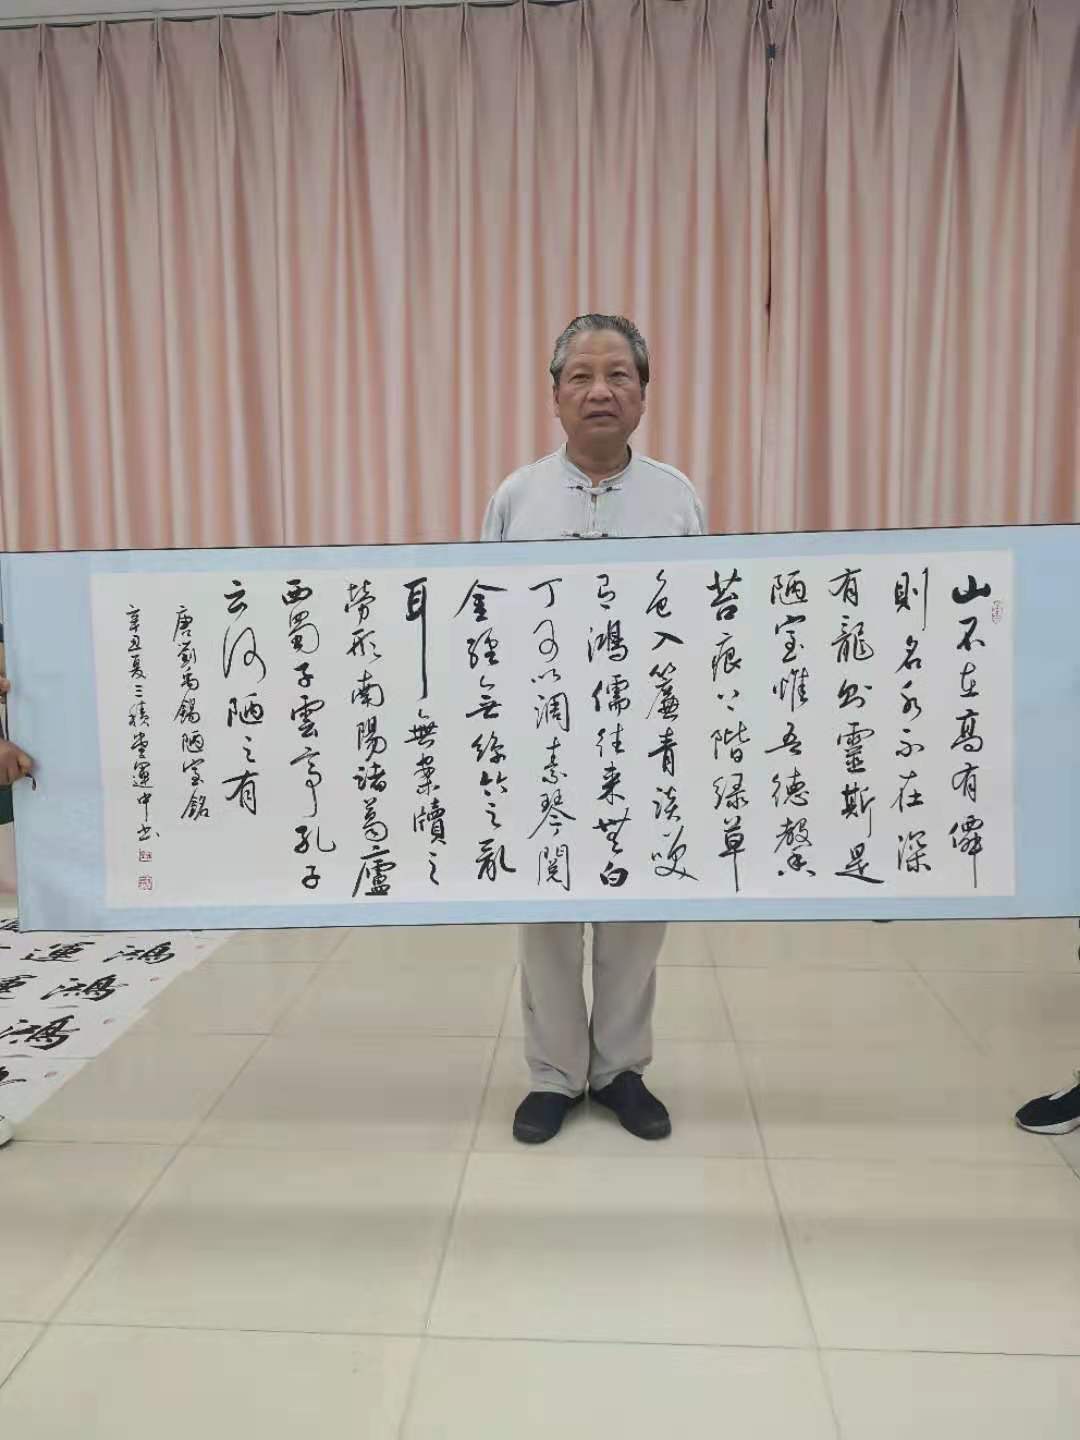 山不在高有僊
則名水不在深
有龍則靈斯是
陋室惟吾德馨
苔痕上階緑草
色入簾青談笑
有鴻儒往来無白
丁可以調素琴閱
金經無絲竹之亂
耳無案牘之
勞形南陽諸葛廬
西蜀子雲亭孔子
云何陋之有
唐劉禹錫陋室銘
辛丑夏三積堂運中书
運鴻
運鴻
鴻